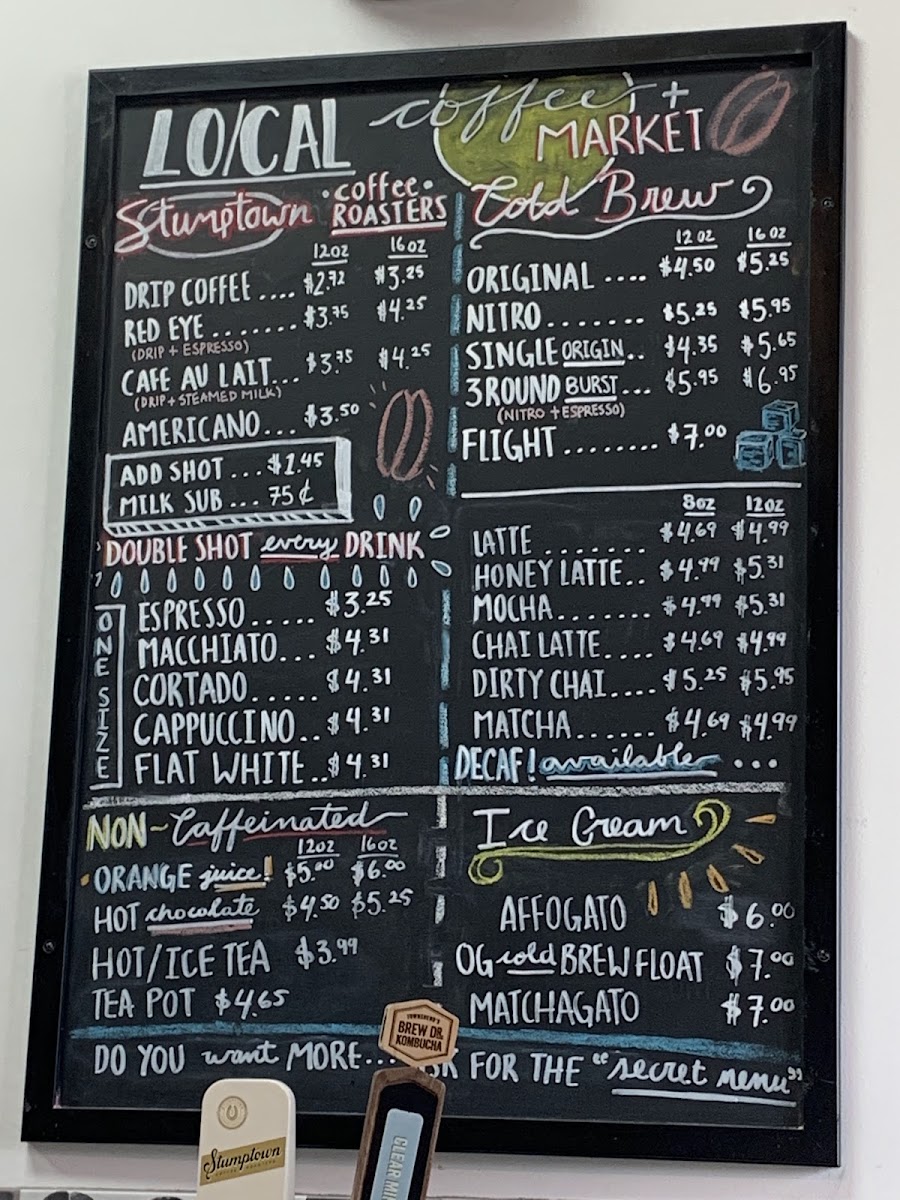 LO/CAL coffee + MARKET
Stumptown coffee ROASTERS
12oz 16oz
DRIP COFFEE .... $2.72 $3.25
RED EYE ....... $3.75 $4.25
(DRIP + ESPRESSO)
CAFE AU LAIT... $3.75 $4.25
(DRIP + STEAMED MILK)
AMERICANO... $3.50
ADD SHOT ... $1.45
MILK SUB ... 75¢
DOUBLE SHOT every DRINK
ONE SIZE
ESPRESSO ..... $3.25
MACCHIATO... $4.31
CORTADO..... $4.31
CAPPUCCINO.. $4.31
FLAT WHITE.. $4.31
Cold Brew
12 oz 16 oz
ORIGINAL .... $4.50 $5.25
NITRO....... $5.25 $5.95
SINGLE ORIGIN.. $4.35 $5.65
3 ROUND BURST... $5.95 $6.95
(NITRO + ESPRESSO)
FLIGHT ........ $7.00
8oz 12oz
LATTE ....... $4.69 $4.99
HONEY LATTE.. $4.99 $5.31
MOCHA....... $4.99 $5.31
CHAI LATTE.... $4.69 $4.99
DIRTY CHAI.... $5.25 $5.95
MATCHA...... $4.69 $4.99
DECAF! available ...
NON-Caffeinated
12oz 16oz
ORANGE juice! $5.00 $6.00
HOT chocolate $4.50 $5.25
HOT/ICE TEA $3.99
TEA POT $4.65
Ice Cream
AFFOGATO $6.00
OG cold BREW FLOAT $7.00
MATCHAGATO $7.00
DO YOU want MORE... FOR THE "secret menu"
TOWNSHEND'S
BREW DR.
KOMBUCHA
Stumptown
COFFEE ROASTERS
CLEAR